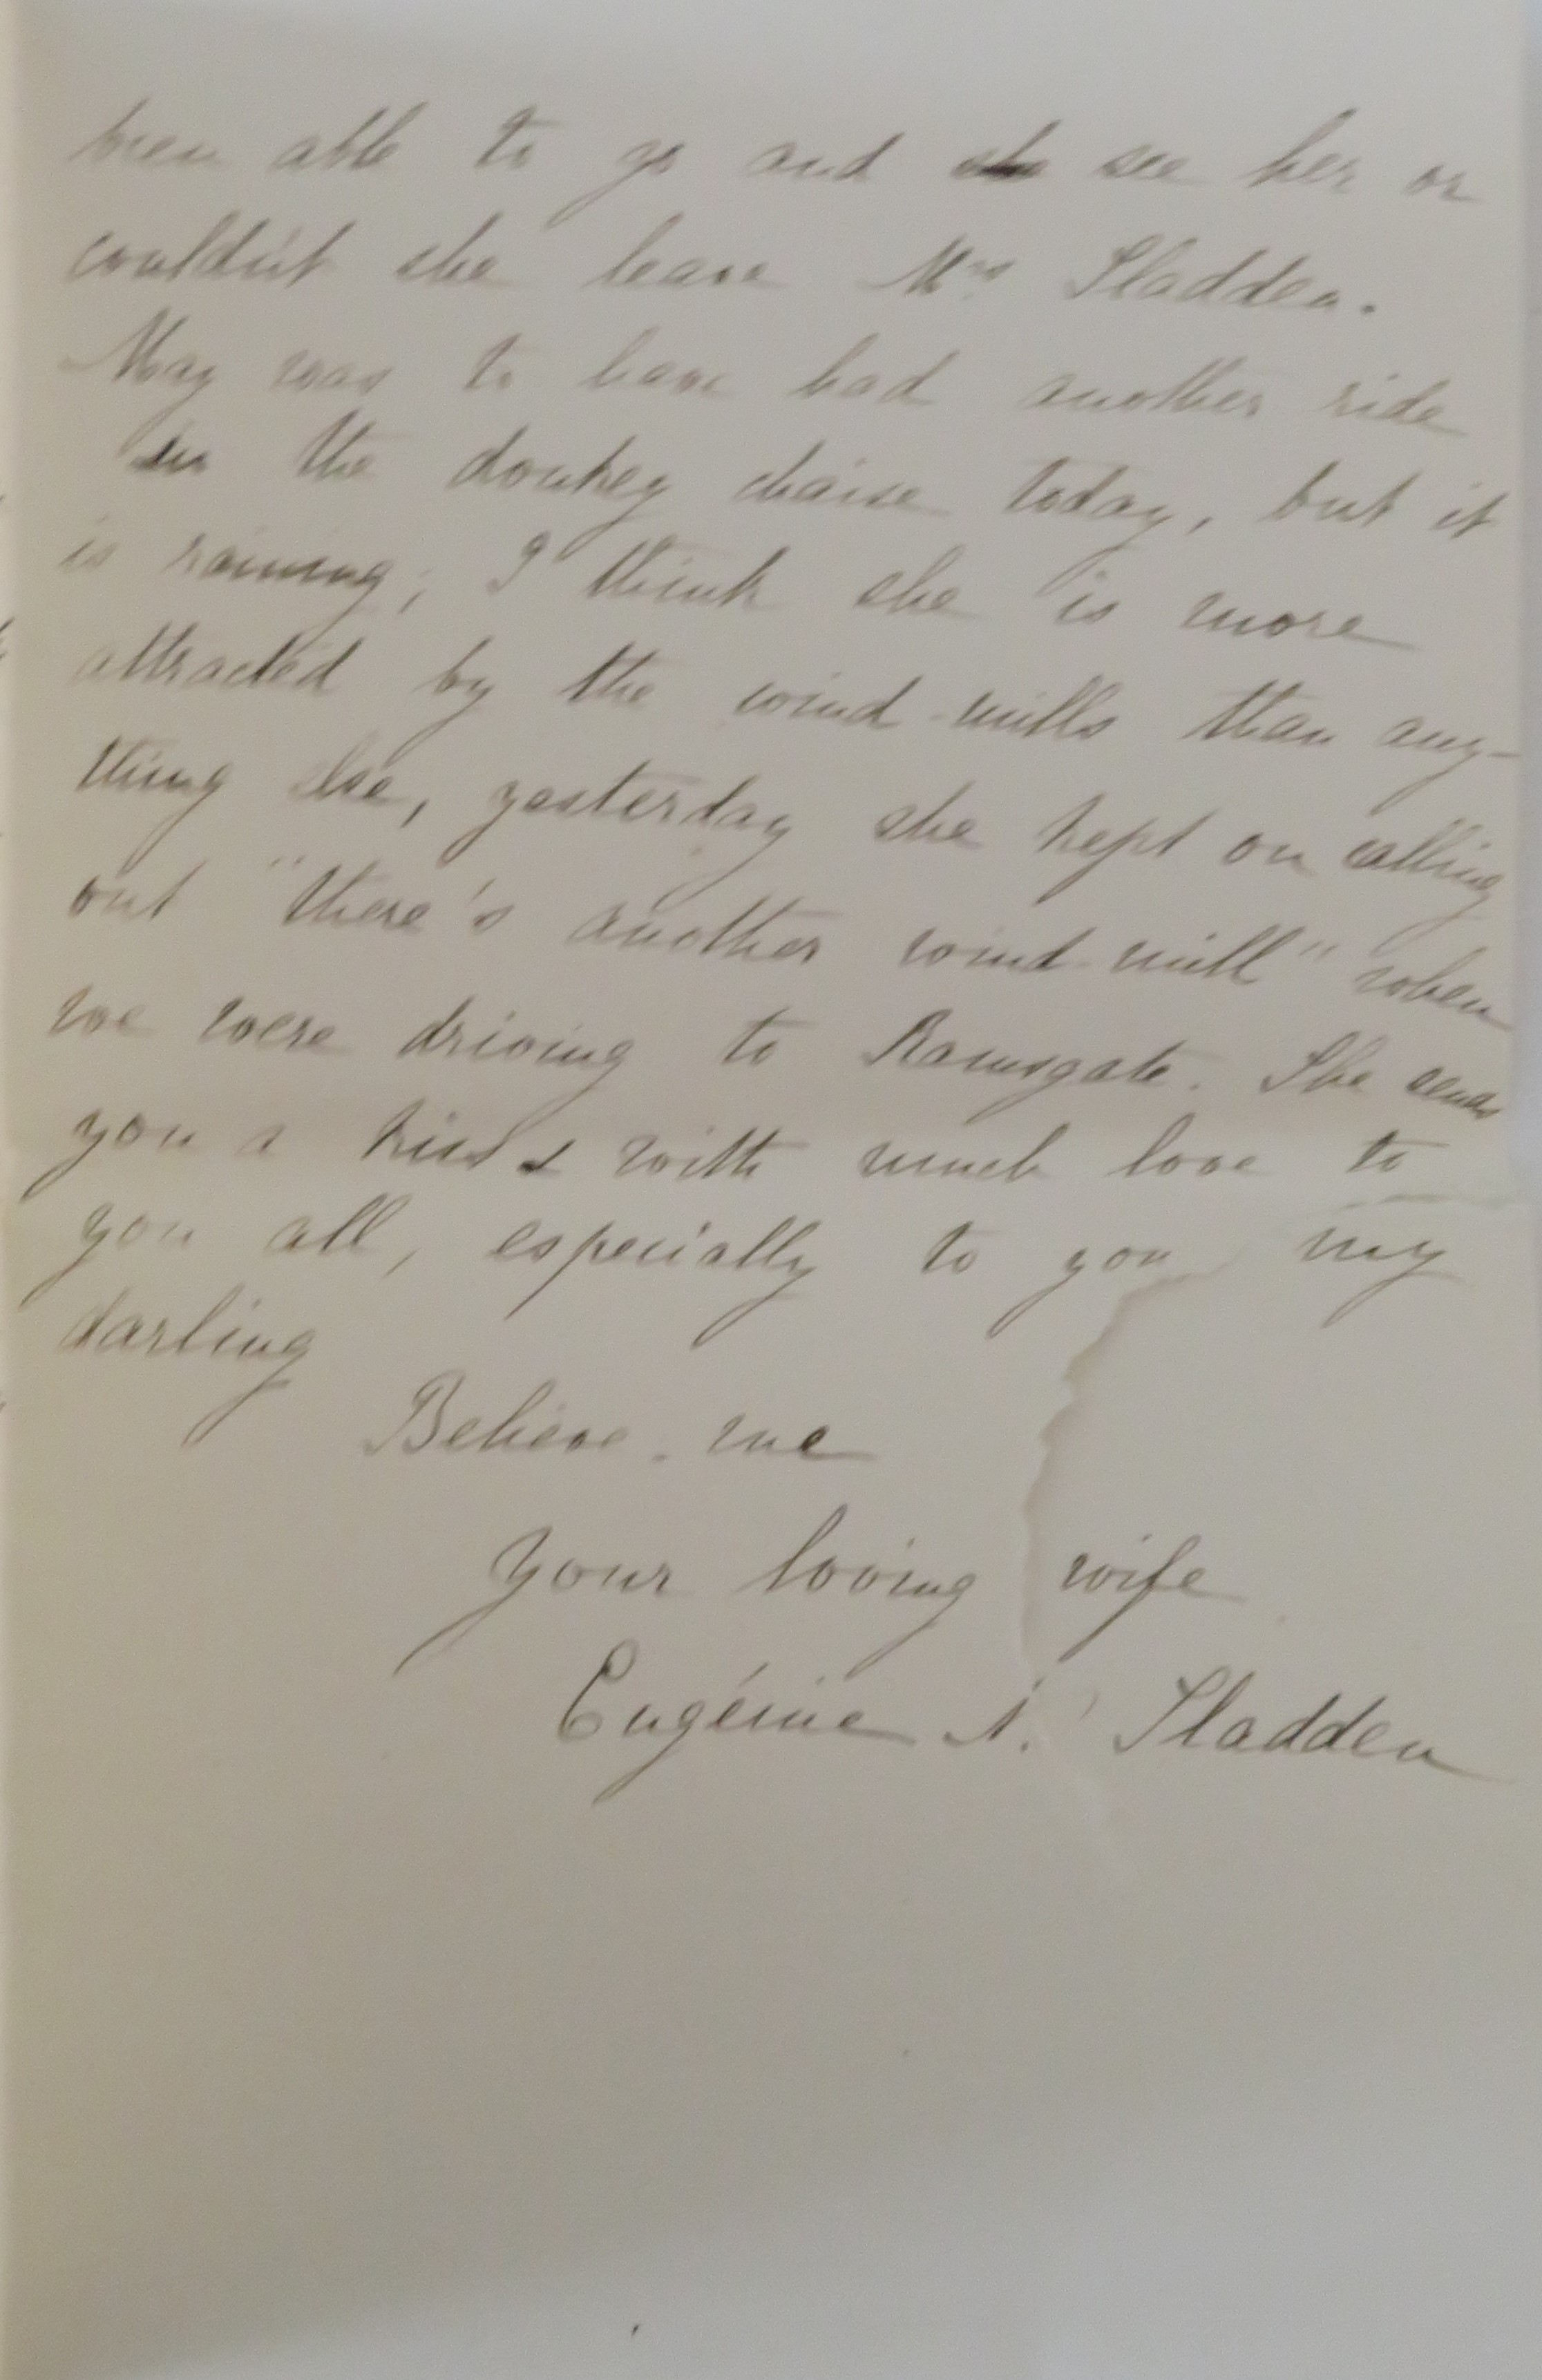 been able to go and see her or
couldn't she leave Mrs Sladden.
May was to have had another ride
in the donkey chaise today, but it
is raining; I think she is more
attracted by the wind-mills than any-
thing else, yesterday she kept on calling
out "there's another wind-mill" when
we were driving to Ramsgate. She sends
you a kiss & with much love to
you all, especially to you my
darling
Believe me
Your loving wife
Eugénie N. Sladden